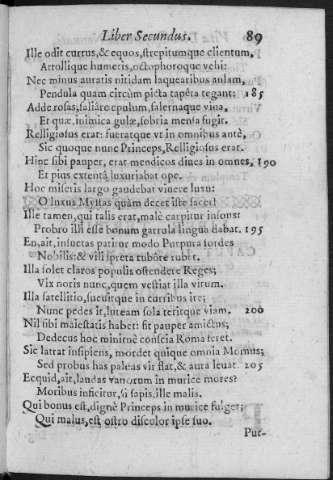 Liber Secundus. 89
Ille odit currus, & equos, strepitumque clientum,
Attollique humeris, octophoroque vehi:
Nec minus auratis nitidam laquearibus aulam,
Pendula quam circùm picta tapêta tegant: 185
Adde rosas, saliare epulum, salernaque vina,
Et quæ, inimica gulæ, sobria mensa fugit.
Relligiosus erat: fueratque vt in omnibus antè,
Sic quoque nunc Princeps, Relligiosus erat.
Hinc sibi pauper, erat mendicos diues in omnes, 190
Et pius extentâ luxuriabat ope.
Hoc miseris largo gaudebat viuere luxu:
O luxus Mystas quàm decet iste sacer!
Ille tamen, qui talis erat, malè carpitur insons:
Probro illi esse bonum garrula lingua dabat. 195
En, ait, insuetas patitur modo Purpura sordes
Nobilis: & vili spreta rubore rubet.
Illa solet claros populis ostendere Reges;
Vix noris nunc, quem vestiat illa virum.
Illa satellitio, sueuitque in curribus ire;
Nunc pedes it, luteam sola teritque viam. 200
Nil sibi maiestatis habet: fit pauper amictus;
Dedecus hoc minimè conscia Roma feret.
Sic latrat insipiens, mordet quique omnia Momus;
Sed probus has paleas vir flat, & aura leuat. 205
Ecquid, ait, laudas vanorum in murice mores?
Moribus inficitur, si sapis, ille malis.
Qui bonus est, dignè Princeps in murice fulget;
Qui malus, est ostro discolor ipse suo.
Pur-